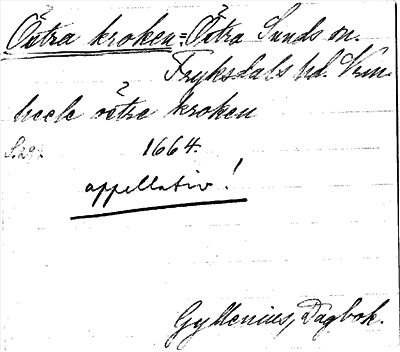 Östra kroken = Östra Sunds sn.
Fryksdals hd. Vrm.
heele östre kroken
1664.
appellativ!
Gyllenius, Dagbok.